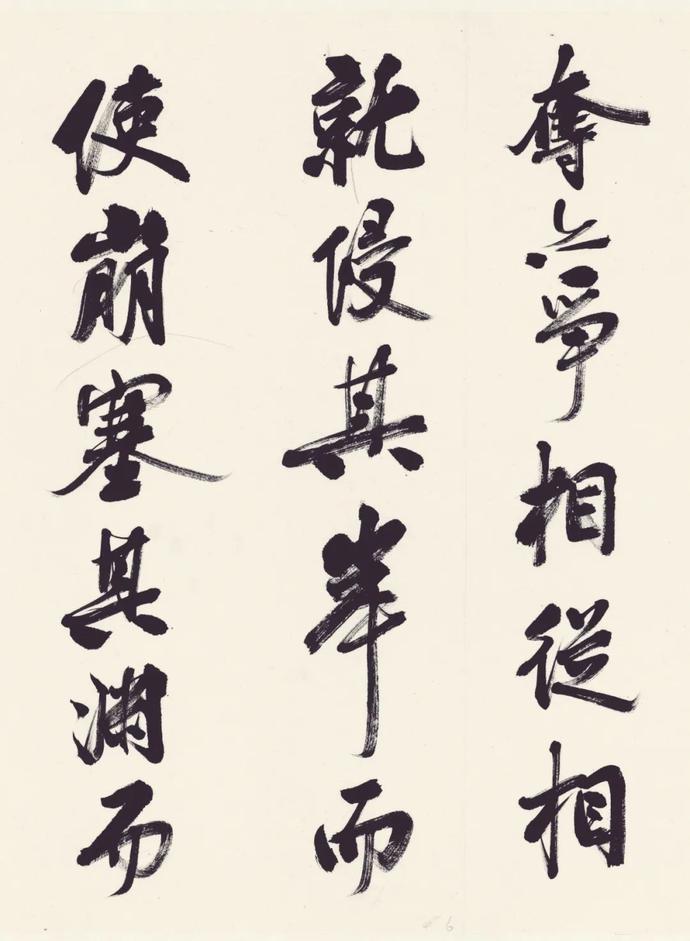 奪爭相從相
就侵其峯而
使崩塞其淵而